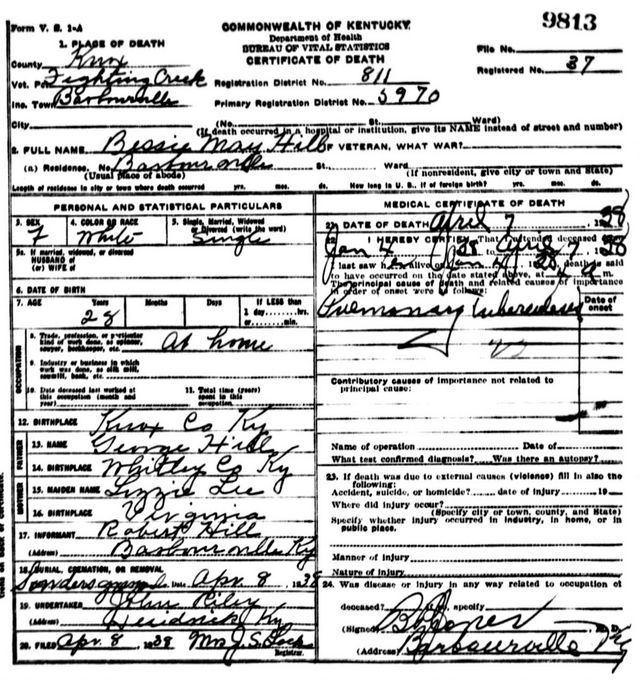 Form V. S. 1-A
COMMONWEALTH OF KENTUCKY
9813
Department of Health
BUREAU OF VITAL STATISTICS
CERTIFICATE OF DEATH
1. PLACE OF DEATH
County Knox
File No.
Vot. Pct Fighting Creek
Registration District No. 811
Registered No. 37
Inc. Town Barbourville
Primary Registration District No. 5970
City (No. St. Ward)
(If death occurred in a hospital or institution, give its NAME instead of street and number)
2. FULL NAME Bessie May Hill
IF VETERAN, WHAT WAR?
(a) Residence. No Barbourville St. Ward
(Usual place of abode)
(If nonresident, give city or town and State)
Length of residence in city or town where death occurred yrs. mos. ds. How long in U. S., if of foreign birth? yrs. mos. ds.
PERSONAL AND STATISTICAL PARTICULARS
3. SEX F
4. COLOR OR RACE White
5. Single, Married, Widowed or Divorced (write the word) Single
5a. If married, widowed, or divorced
HUSBAND of
(or) WIFE of
6. DATE OF BIRTH
7. AGE Years Months Days If LESS than
28
1 day, hrs.
or min.
OCCUPATION
8. Trade, profession, or particular kind of work done, as spinner, sawyer, bookkeeper, etc. At home
9. Industry or business in which work was done, as silk mill, sawmill, bank, etc.
10. Date deceased last worked at this occupation (month and year)
11. Total time (years) spent in this occupation
12. BIRTHPLACE Knox Co Ky
FATHER
13. NAME George Hill
14. BIRTHPLACE Whitley Co Ky
MOTHER
15. MAIDEN NAME Lizzie Lee
16. BIRTHPLACE Virginia
17. INFORMANT Robert Hill
(Address) Barbourville Ky
18. BURIAL, CREMATION, OR REMOVAL
Date Apr. 8 1938
19. UNDERTAKER John Riley
Ky
20. FILED Apr. 8 1938 Mrs J. S.
Registrar.
MEDICAL CERTIFICATE OF DEATH
21. DATE OF DEATH April 7
22. I HEREBY CERTIFY, That I attended deceased
Jan 7 to April 7
I last saw h alive death is said
to have occurred on the date stated above, at m.
The principal cause of death and related causes of importance
in order of onset were as follows:
Date of onset
Pulmonary Tuberculosis
Contributory causes of importance not related to
principal cause:
Name of operation Date of
What test confirmed diagnosis? Was there an autopsy?
23. If death was due to external causes (violence) fill in also the
following:
Accident, suicide, or homicide? date of injury 19
Where did injury occur?
(Specify city or town, county, and State)
Specify whether injury occurred in industry, in home, or in
public place.
Manner of injury
Nature of injury
24. Was disease or injury in any way related to occupation of
deceased? If so, specify
(Signed) M. D.
(Address) Barbourville Ky